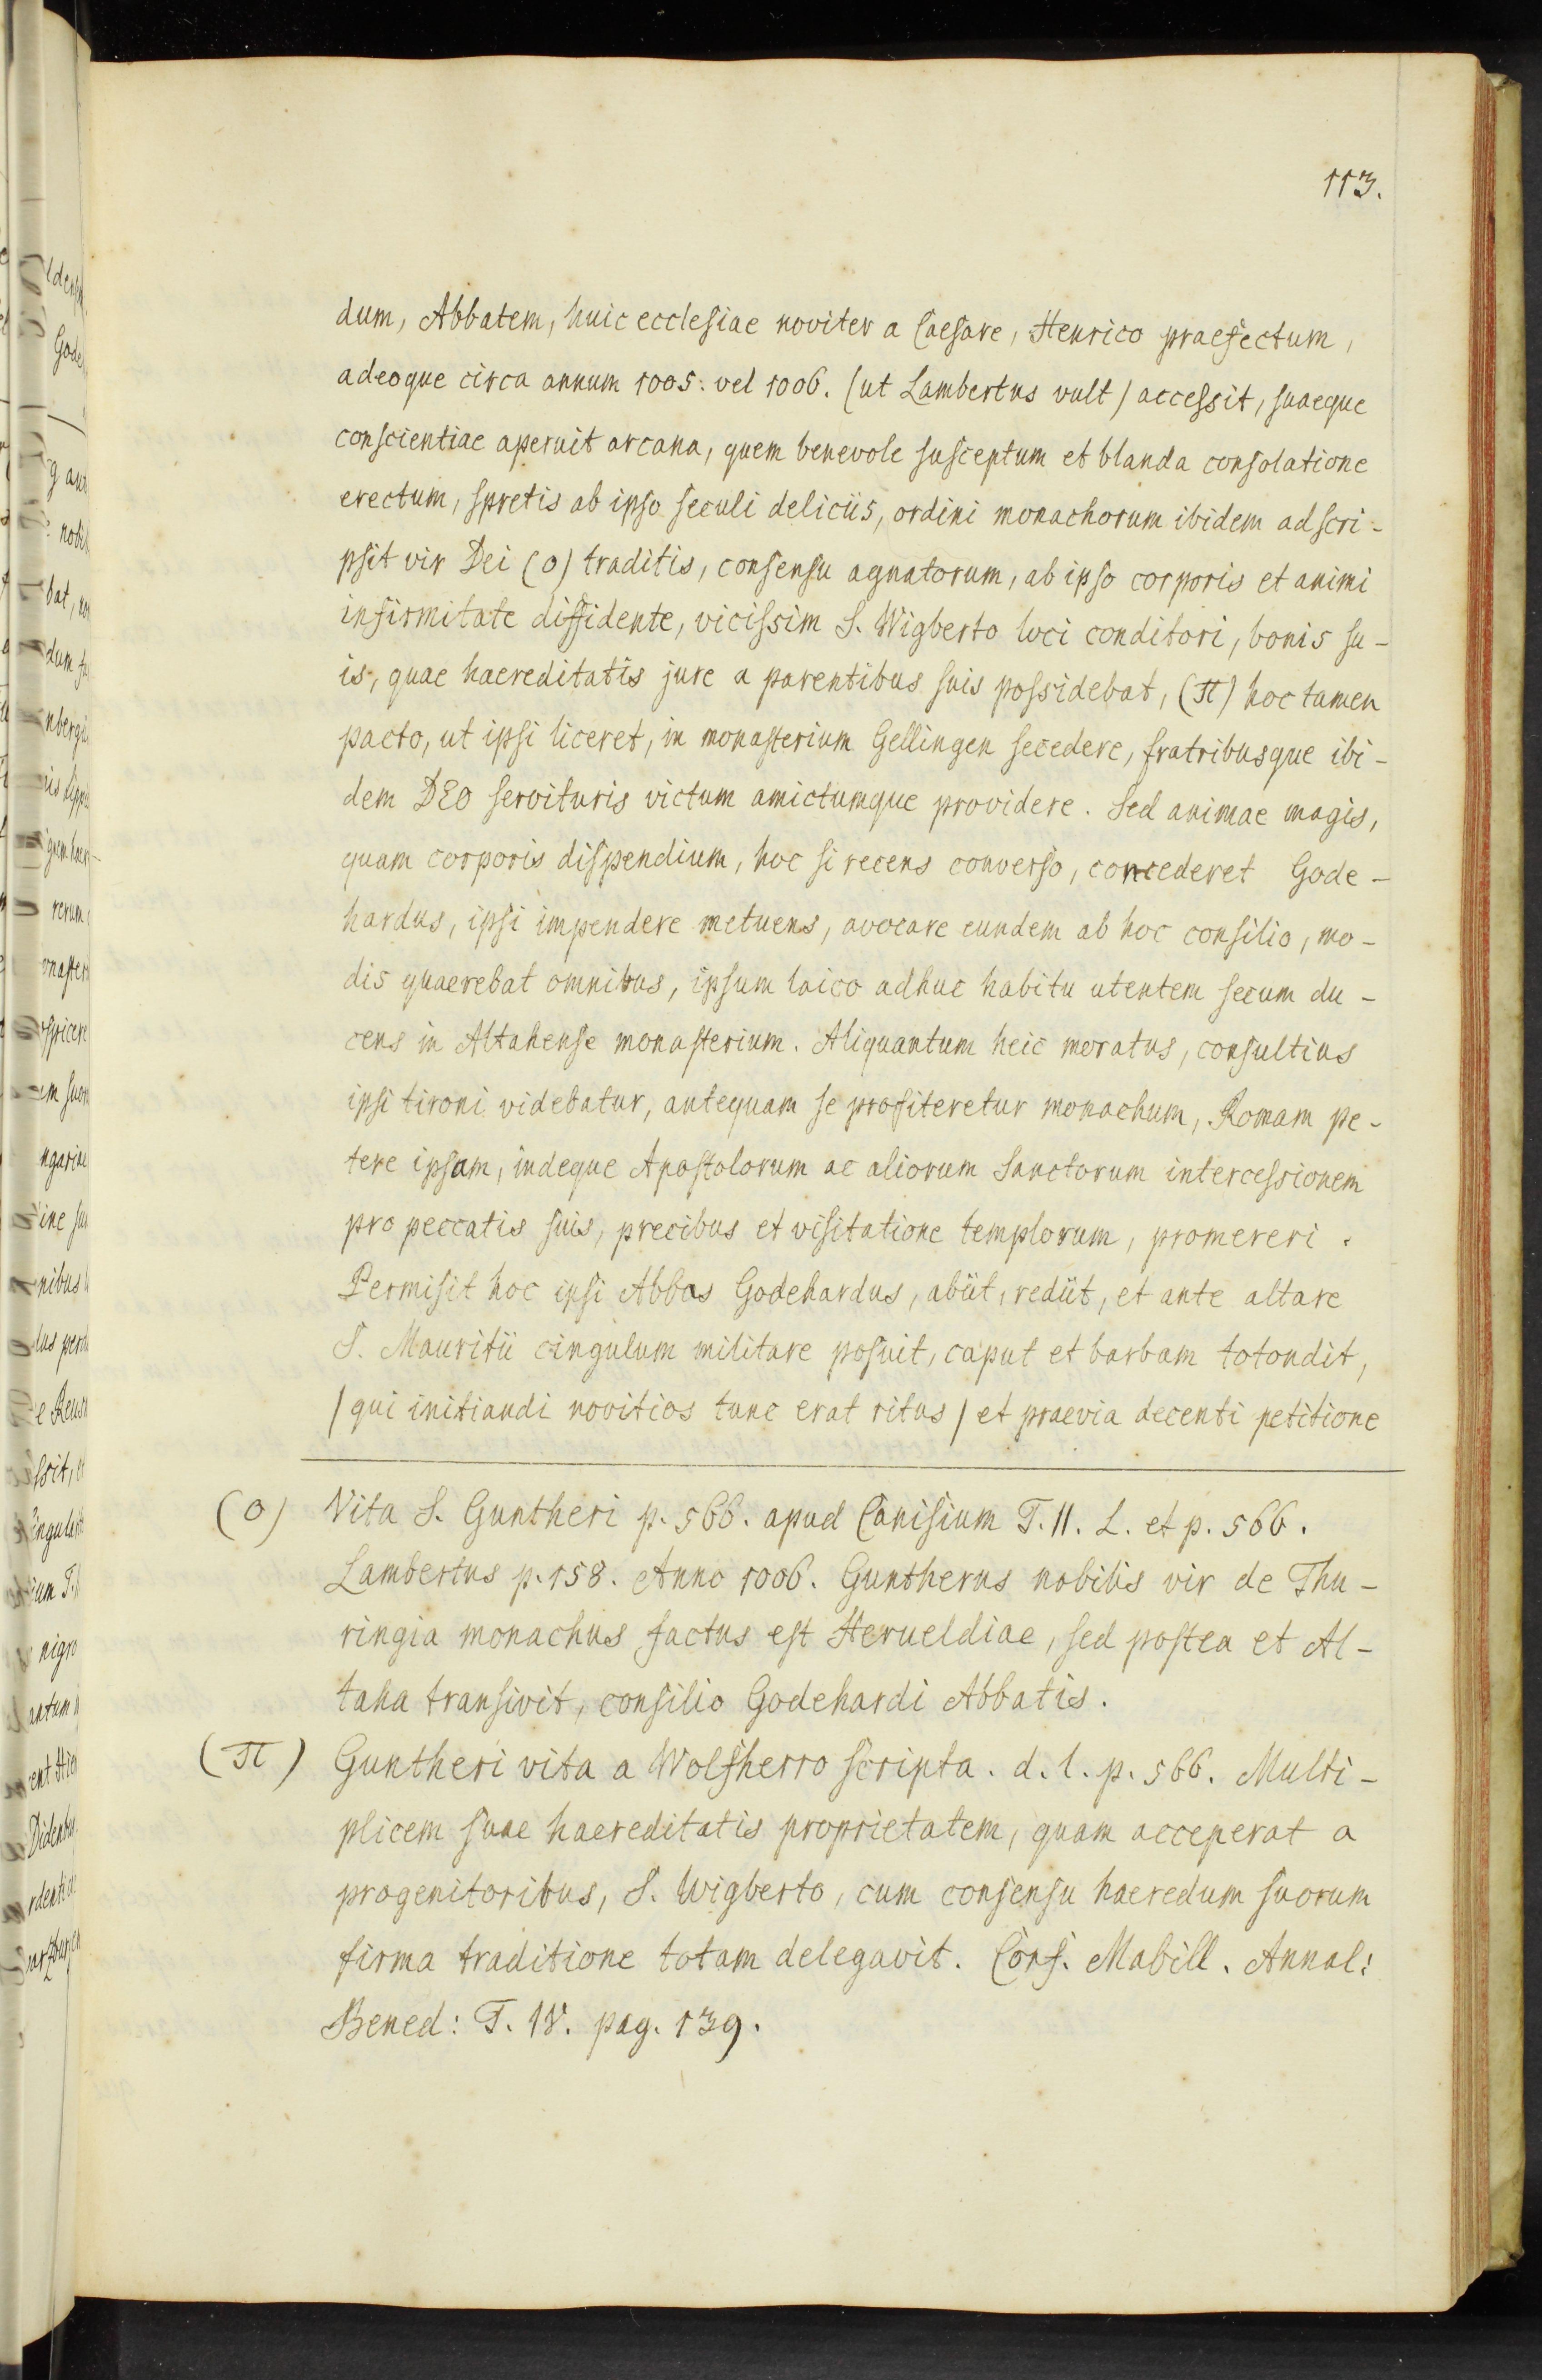 113.
dum, Abbatem, huic ecclesiae noviter a Caesare, Henrico praefectum,
adeoque circa annum 1005. vel 1006. (ut Lambertus vult) accessit, suaeque
conscientiae aperuit arcana, quem benevole susceptum et blanda consolatione
erectum, spretis ab ipso seculi deliciis, ordini monachorum ibidem adscri-
psit vir Dei (o) traditis, consensu agnatorum, ab ipso corporis et animi
infirmitate diffidente, vicissim S. Wigberto loci conditori, bonis su-
is, quae haereditatis jure a parentibus suis possidebat, (π) hoc tamen
pacto, ut ipsi liceret, in monasterium Gellingen secedere, fratribusque ibi-
dem DEO servituris victum amictumque providere. Sed animae magis,
quam corporis dispendium, hoc si recens converso, concederet Gode-
hardus, ipsi impendere metuens, avocare eundem ab hoc consilio, mo-
dis quaerebat omnibus, ipsum laico adhuc habitu utentem secum du-
cens in Altahense monasterium. Aliquantum heic moratus, consultius
ipsi tironi videbatur, antequam se profiteretur monachum, Romam pe-
tere ipsam, indeque Apostolorum ac aliorum Sanctorum intercessionem
pro peccatis suis, precibus et visitatione templorum, promereri.
Permisit hoc ipsi Abbas Godehardus, abiit, rediit, et ante altare
S. Mauritii cingulum militare posuit, caput et barbam totondit,
(qui initiandi novitios tunc erat ritus) et praevia decenti petitione
(o) Vita S. Guntheri p. 566. apud Canisium T. II. L. et p. 566.
Lambertus p. 158. Anno 1006. Guntherus nobilis vir de Thu-
ringia monachus factus est Herueldiae, sed postea et Al-
taha transivit, consilio Godehardi Abbatis.
(π) Guntheri vita a Wolfherro scripta. d. l. p. 566. Multi-
plicem suae haereditatis proprietatem, quam acceperat a
progenitoribus, S. Wigberto, cum consensu haeredum suorum
firma traditione totam delegavit. Conf. Mabill. Annal:
Bened: T. IV. pag. 139.